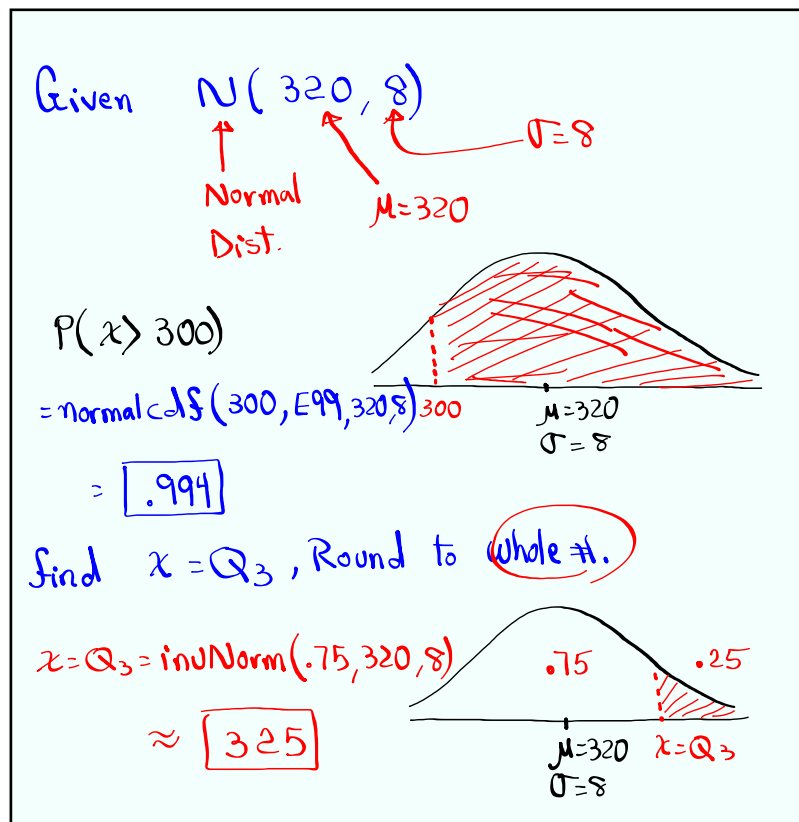 Given N( 320, 8)
σ=8
Normal
Dist.
μ=320
P(x>300)
=normalcdf(300,E99,320,8)
300
μ=320
σ=8
= .994
find x=Q₃, Round to whole #.
x=Q₃=invNorm(.75,320,8)
.75
.25
≈ 325
μ=320
σ=8
x=Q₃